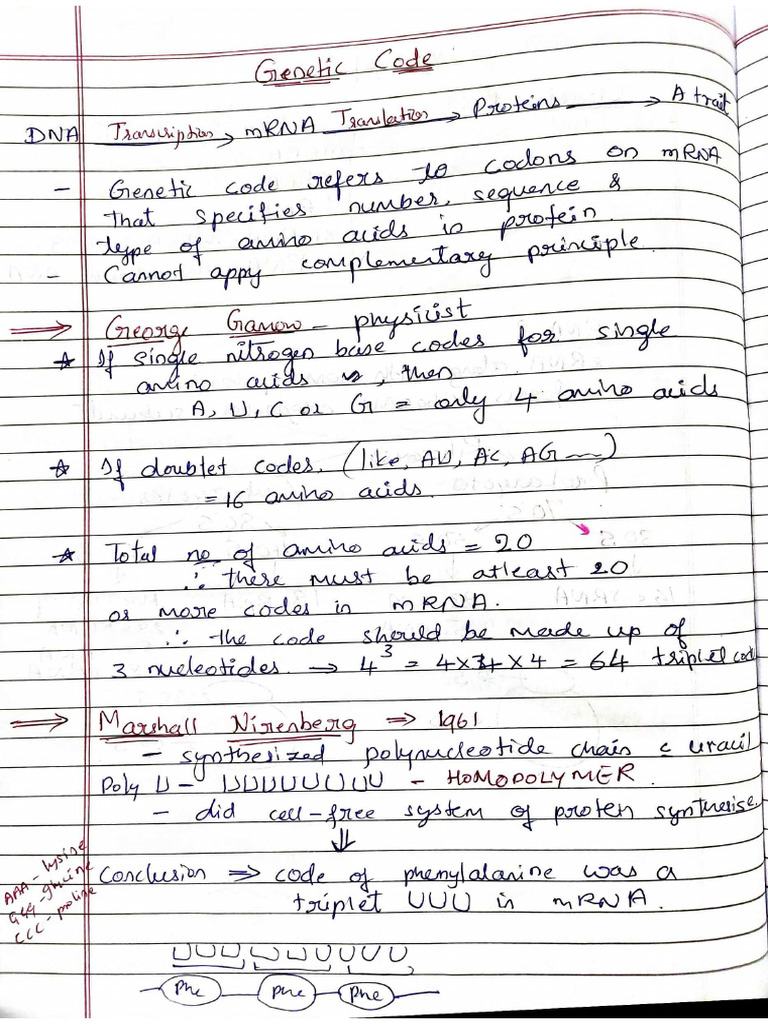 Genetic Code
DNA Transcription → mRNA Translation → Proteins → A trait
- Genetic code refers to codons on mRNA
that specifies number, sequence &
type of amino acids in protein.
- Cannot appy complementary principle.
⇒ George Gamow - physicist
* If single nitrogen base codes for single
amino acids, then
A, U, C or G = only 4 amino acids
* If doublet codes, (like, AU, AC, AG ~~)
= 16 amino acids.
* Total no of amino acids = 20
∴ there must be atleast 20
or more codes in mRNA.
∴ the code should be made up of
3 nucleotides → 4³ = 4×4×4 = 64 triplet cod
⇒ Marshall Nirenberg ⇒ 1961
- synthesized polynucleotide chain c uracil
Poly U - UUUUUUUU - HOMOPOLYMER.
- did cell-free system of protein syntherise
⇓
Conclusion ⇒ code of phenylalanine was a
triplet UUU in mRNA.
AAA - lysine
GGG - glycine
CCC - proline
UUU UUU UUU
Phe Phe Phe